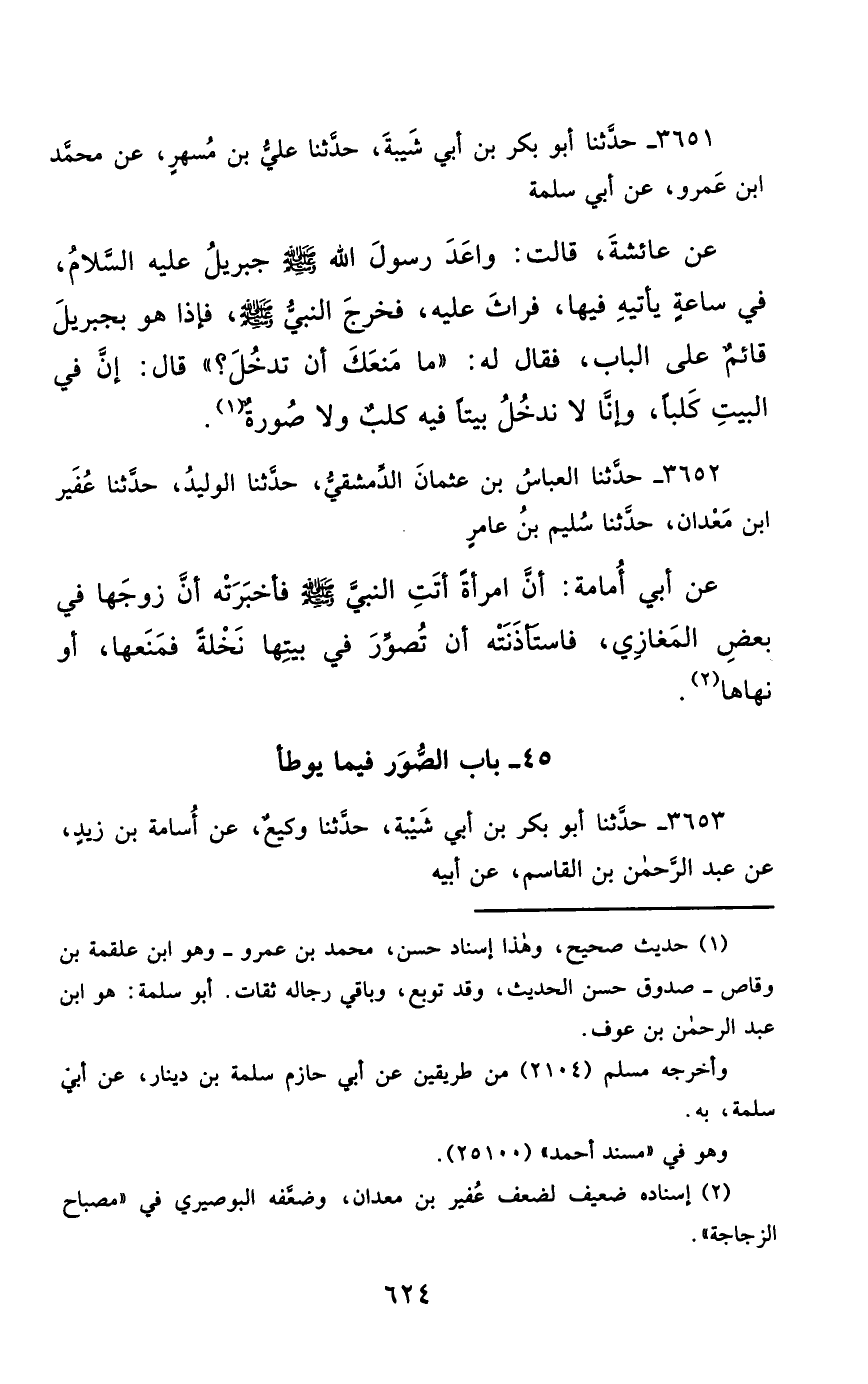 ٣٦٥١ـ حدَّثنا أبو بكر بن أبي شَيبةَ، حدَّثنا عليُّ بن مُسهرٍ، عن محمَّد
ابن عَمرو، عن أبي سلمة
عن عائشةَ، قالت: واعَدَ رسولَ الله ﷺ جبريلُ عليه السَّلامُ،
في ساعةٍ يأتيهِ فيها، فراثَ عليه، فخرجَ النبيُّ ﷺ، فإذا هو بجبريلَ
قائمٌ على الباب، فقال له: «ما مَنعَكَ أن تدخُلَ؟» قال: إنَّ في
البيتِ كَلباً، وإنَّا لا ندخُلُ بيتاً فيه كلبٌ ولا صُورةٌ(١).
٣٦٥٢ـ حدَّثنا العباسُ بن عثمانَ الدِّمشقيُّ، حدَّثنا الوليدُ، حدَّثنا عُفَير
ابن مَعْدان، حدَّثنا سُليم بنُ عامرٍ
عن أبي أُمامة: أنَّ امرأةً أتَتِ النبيَّ ﷺ فأخبَرَتْه أنَّ زوجَها في
بعضِ المَغازِي، فاستَأذَنَتْه أن تُصوِّرَ في بيتِها نَخْلةً فمَنَعها، أو
نهاها(٢).
٤٥ـ باب الصُّوَر فيما يوطأ
٣٦٥٣ـ حدَّثنا أبو بكر بن أبي شَيْبة، حدَّثنا وكيعٌ، عن أُسامة بن زيدٍ،
عن عبد الرَّحمٰن بن القاسم، عن أبيه
(١) حديث صحيح، وهٰذا إسناد حسن، محمد بن عمرو ـ وهو ابن علقمة بن
وقاص ـ صدوق حسن الحديث، وقد توبع، وباقي رجاله ثقات. أبو سلمة: هو ابن
عبد الرحمٰن بن عوف.
وأخرجه مسلم (٢١٠٤) من طريقين عن أبي حازم سلمة بن دينار، عن أبي
سلمة، به.
وهو في «مسند أحمد» (٢٥١٠٠).
(٢) إسناده ضعيف لضعف عُفير بن معدان، وضعَّفه البوصيري في «مصباح
الزجاجة».
٦٢٤